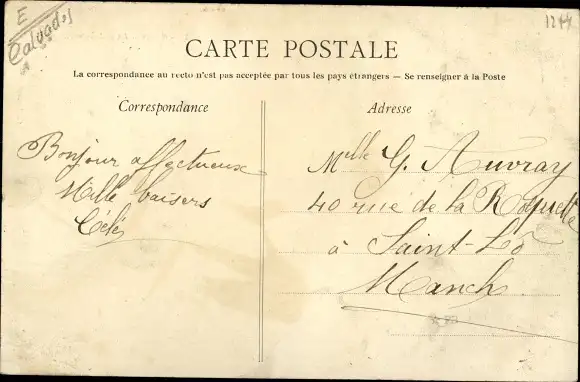 E
Calvados
CARTE POSTALE
La correspondance au recto n'est pas acceptée par tous les pays étrangers — Se renseigner à la Poste
Correspondance
Adresse
Bonjour affectueux
Mille baisers
Célé
Melle G. Auvray
40 rue de la Roquelle
à Saint-Lô
Manche